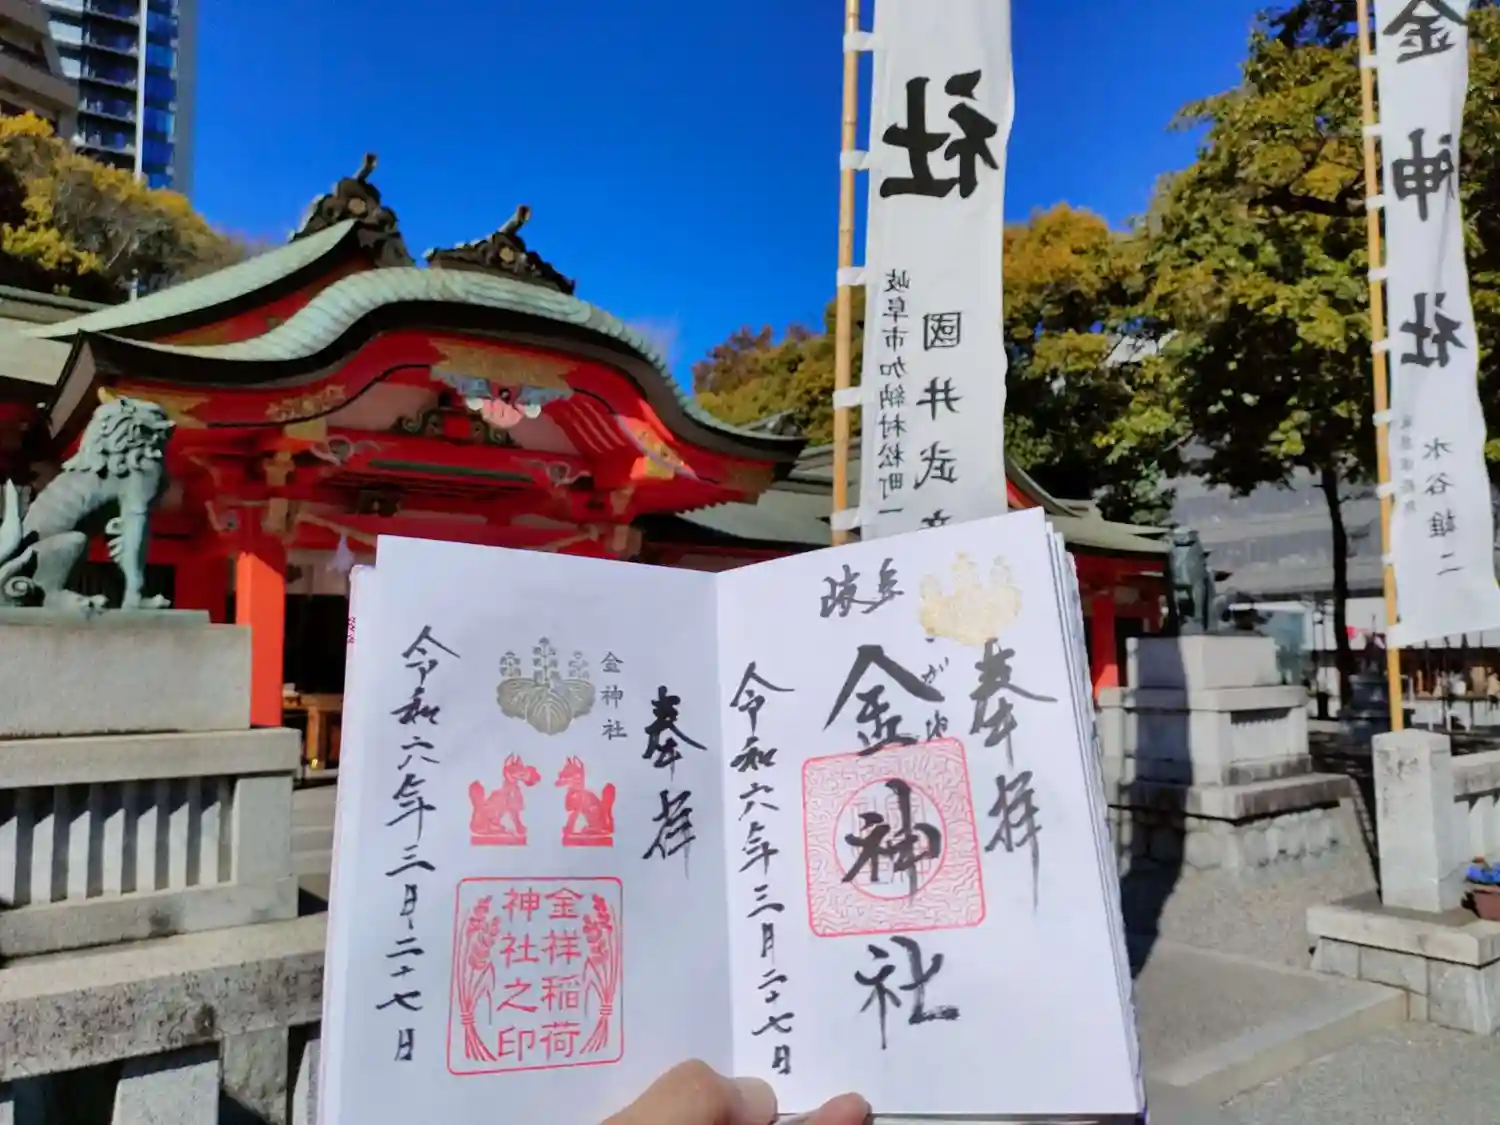 金神社
水谷雄二
社
國井武
岐阜市加納村松町一
奉拝
金神社
令和六年三月二十七日
奉拝
金神社
金祥稲荷
神社之印
令和六年三月二十七日